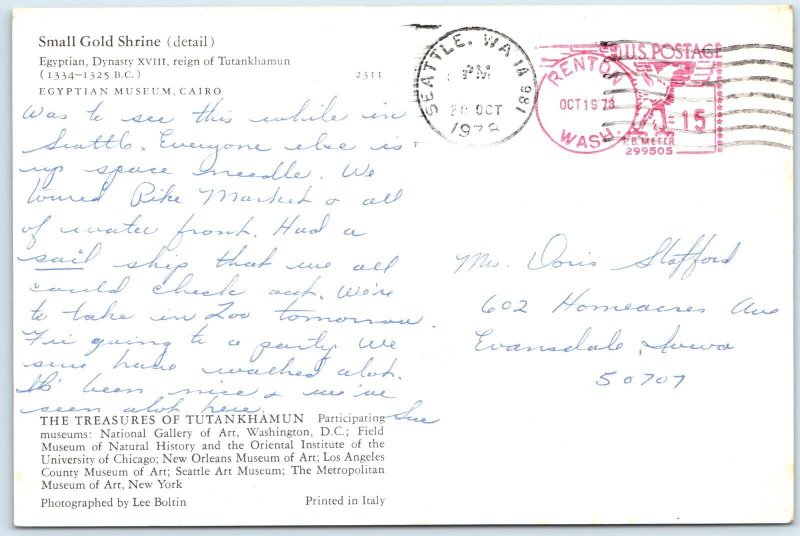 Small Gold Shrine (detail)
Egyptian, Dynasty XVIII, reign of Tutankhamun
(1334–1325 B.C.) 2311
EGYPTIAN MUSEUM, CAIRO
Was to see this while in
Seattle. Everyone else is
up space needle. We
toured Pike Market & all
of water front. Had a
sail ship that we all
could check out. We're
to take in Zoo tomorrow.
Fri going to a party. We
sure have walked alot.
It's been nice & we've
seen alot here.
Sue
THE TREASURES OF TUTANKHAMUN Participating
museums: National Gallery of Art, Washington, D.C.; Field
Museum of Natural History and the Oriental Institute of the
University of Chicago; New Orleans Museum of Art; Los Angeles
County Museum of Art; Seattle Art Museum; The Metropolitan
Museum of Art, New York
Photographed by Lee Boltin Printed in Italy
SEATTLE, WA 981
PM
20 OCT
1978
RENTON
OCT 19 78
WASH.
U.S. POSTAGE
15
P.B. METER
299505
Doris Stafford
602 Homeacres Ave
Evansdale, Iowa
50707